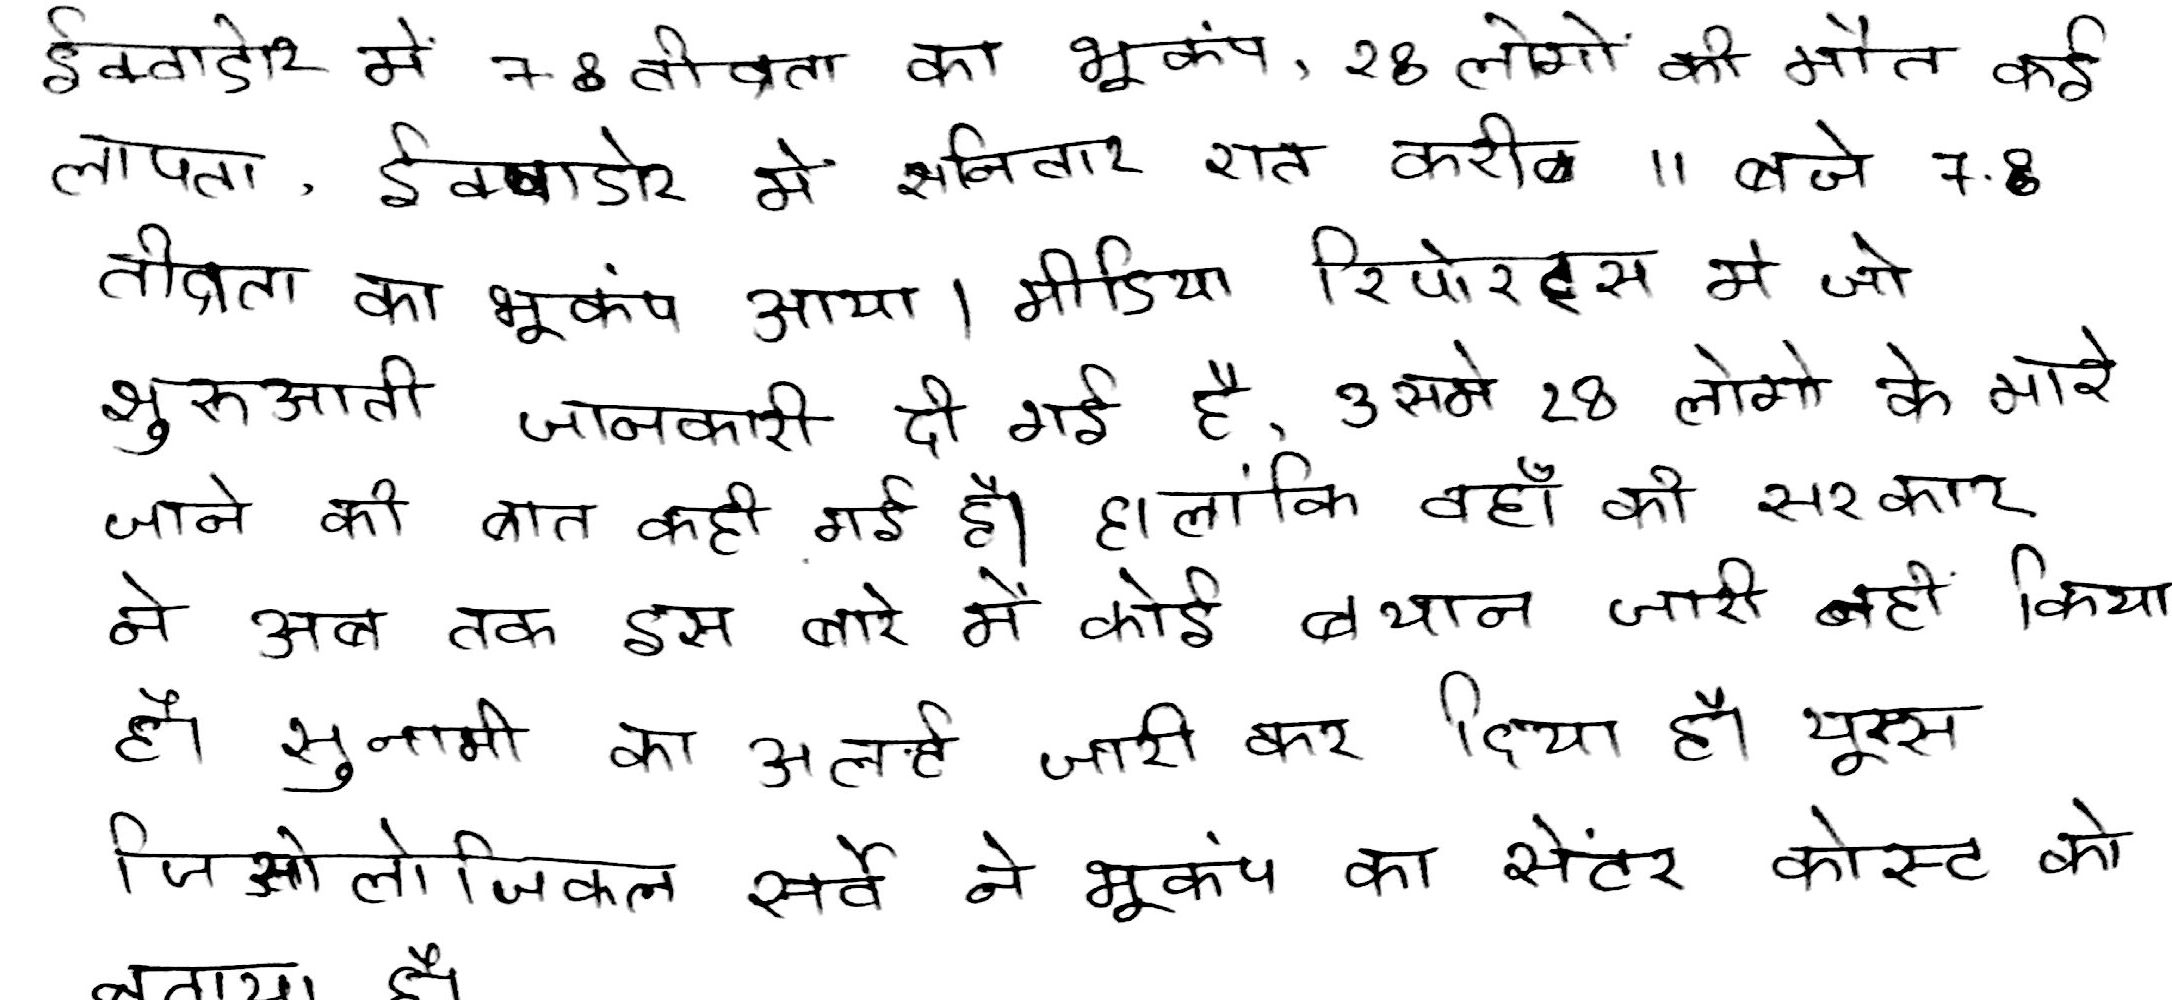 ईक्वाडोर में 7.8 तीव्रता का भूकंप, 28 लोगों की मौत कई
लापता, ईक्वाडोर में शनिवार रात करीब 11 बजे 7.8
तीव्रता का भूकंप आया। मीडिया रिपोरट्स मे जो
शुरुआती जानकारी दी गई है, उसमे 28 लोगो के मारे
जाने की बात कही गई है। हालांकि वहाँ की सरकार
ने अब तक इस बारे में कोई बयान जारी नहीं किया
है। सुनामी का अलर्ट जारी कर दिया है। यूएस
जिओलोजिकल सर्वे ने भूकंप का सेंटर कोस्ट को
बताया है।